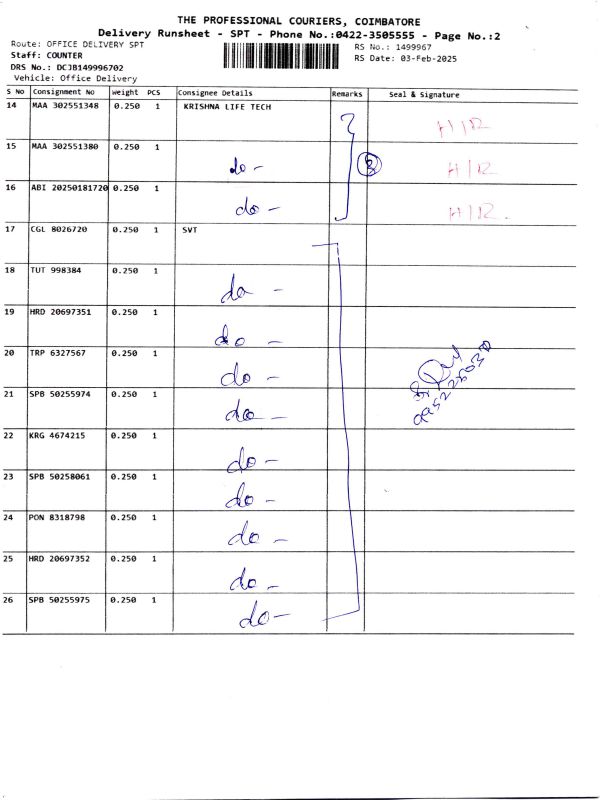 THE PROFESSIONAL COURIERS, COIMBATORE
Delivery Runsheet - SPT - Phone No.:0422-3505555 - Page No.:2
Route: OFFICE DELIVERY SPT
RS No.: 1499967
Staff: COUNTER
RS Date: 03-Feb-2025
DRS No.: DCJB149996702
Vehicle: Office Delivery
S No Consignment No Weight PCS Consignee Details Remarks Seal & Signature
14 MAA 302551348 0.250 1 KRISHNA LIFE TECH H/R
15 MAA 302551380 0.250 1 do - H/R
16 ABI 20250181720 0.250 1 do - H/R.
17 CGL 8026720 0.250 1 SVT
18 TUT 998384 0.250 1 do -
19 HRD 20697351 0.250 1 do -
20 TRP 6327567 0.250 1 do -
21 SPB 50255974 0.250 1 do -
22 KRG 4674215 0.250 1 do -
23 SPB 50258061 0.250 1 do -
24 PON 8318798 0.250 1 do -
25 HRD 20697352 0.250 1 do -
26 SPB 50255975 0.250 1 do -